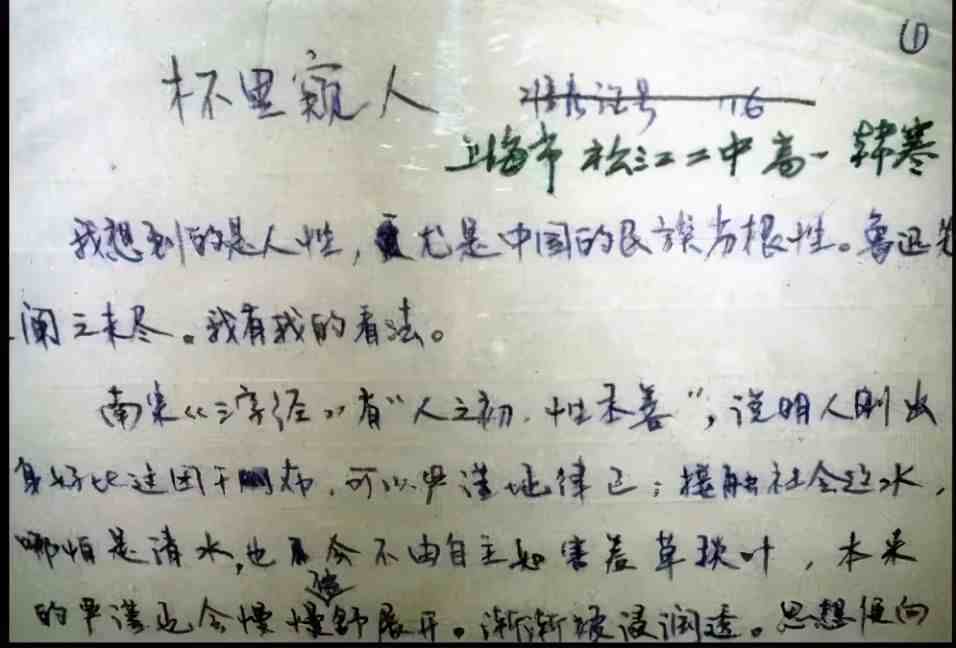 ①
杯里窥人
准考证号 116
上海市松江二中高一 韩寒
我想到的是人性,尤是中国的民族劣根性。鲁迅先
阐之未尽。我有我的看法。
南宋《三字经》有"人之初,性本善",说明人刚出
身好比这团干布,可以严谨地律己;接触社会这水,
哪怕是清水,也会不由自主如害羞草掞叶,本来
的严谨也会慢慢地舒展开。渐渐被浸润透。思想便向